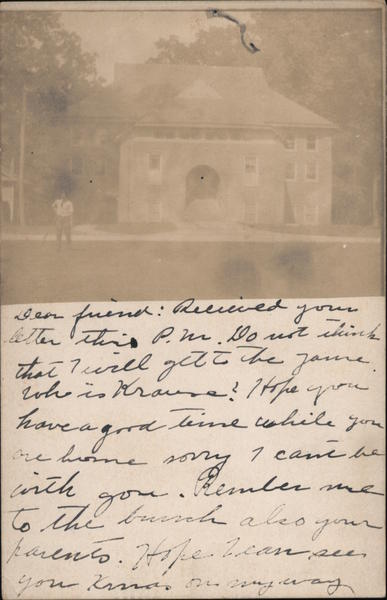 Dear friend: Recieved your
letter this P.M. Do not think
that I will get to the game.
Who is Krause? Hope you
have a good time while you
are home sorry I cant be
with you. Rember me
to the bunch also your
parents. Hope I can see
you Xmas on my way